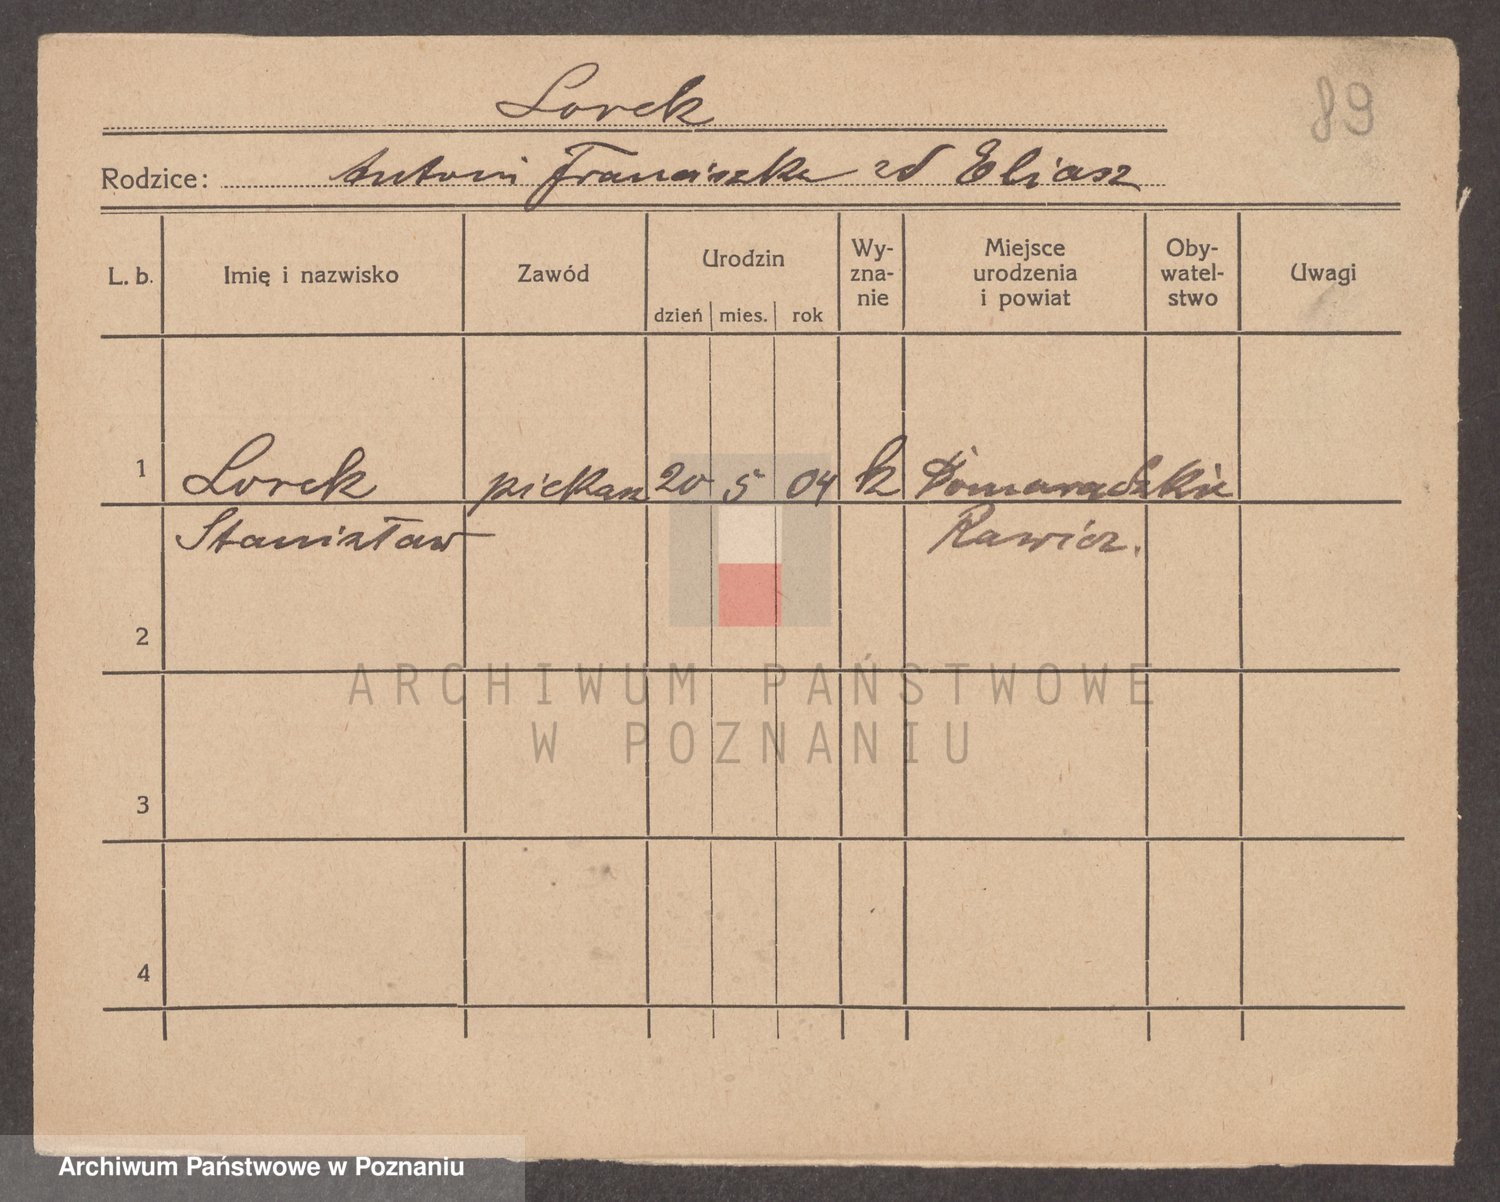 Lorek
89
Rodzice: Antoni Franciszka zd Eliasz
L. b. Imię i nazwisko Zawód Urodzin dzień mies. rok Wy-zna-nie Miejsce urodzenia i powiat Oby-watel-stwo Uwagi
1 Lorek piekarz 20 5 04 k
Stanisław Rawicz.
2
ARCHIWUM PAŃSTWOWE
W POZNANIU
3
4
Archiwum Państwowe w Poznaniu